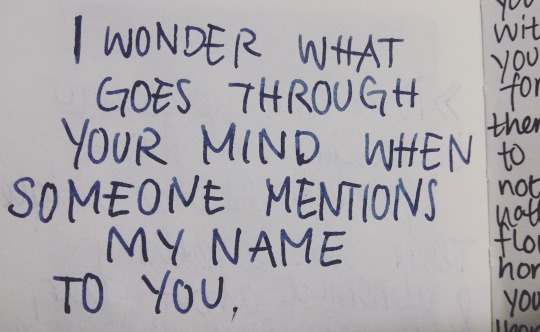 I WONDER WHAT
GOES THROUGH
YOUR MIND WHEN
SOMEONE MENTIONS
MY NAME
TO YOU.
you
wit
you
for
them
to
not
flow
hon
you